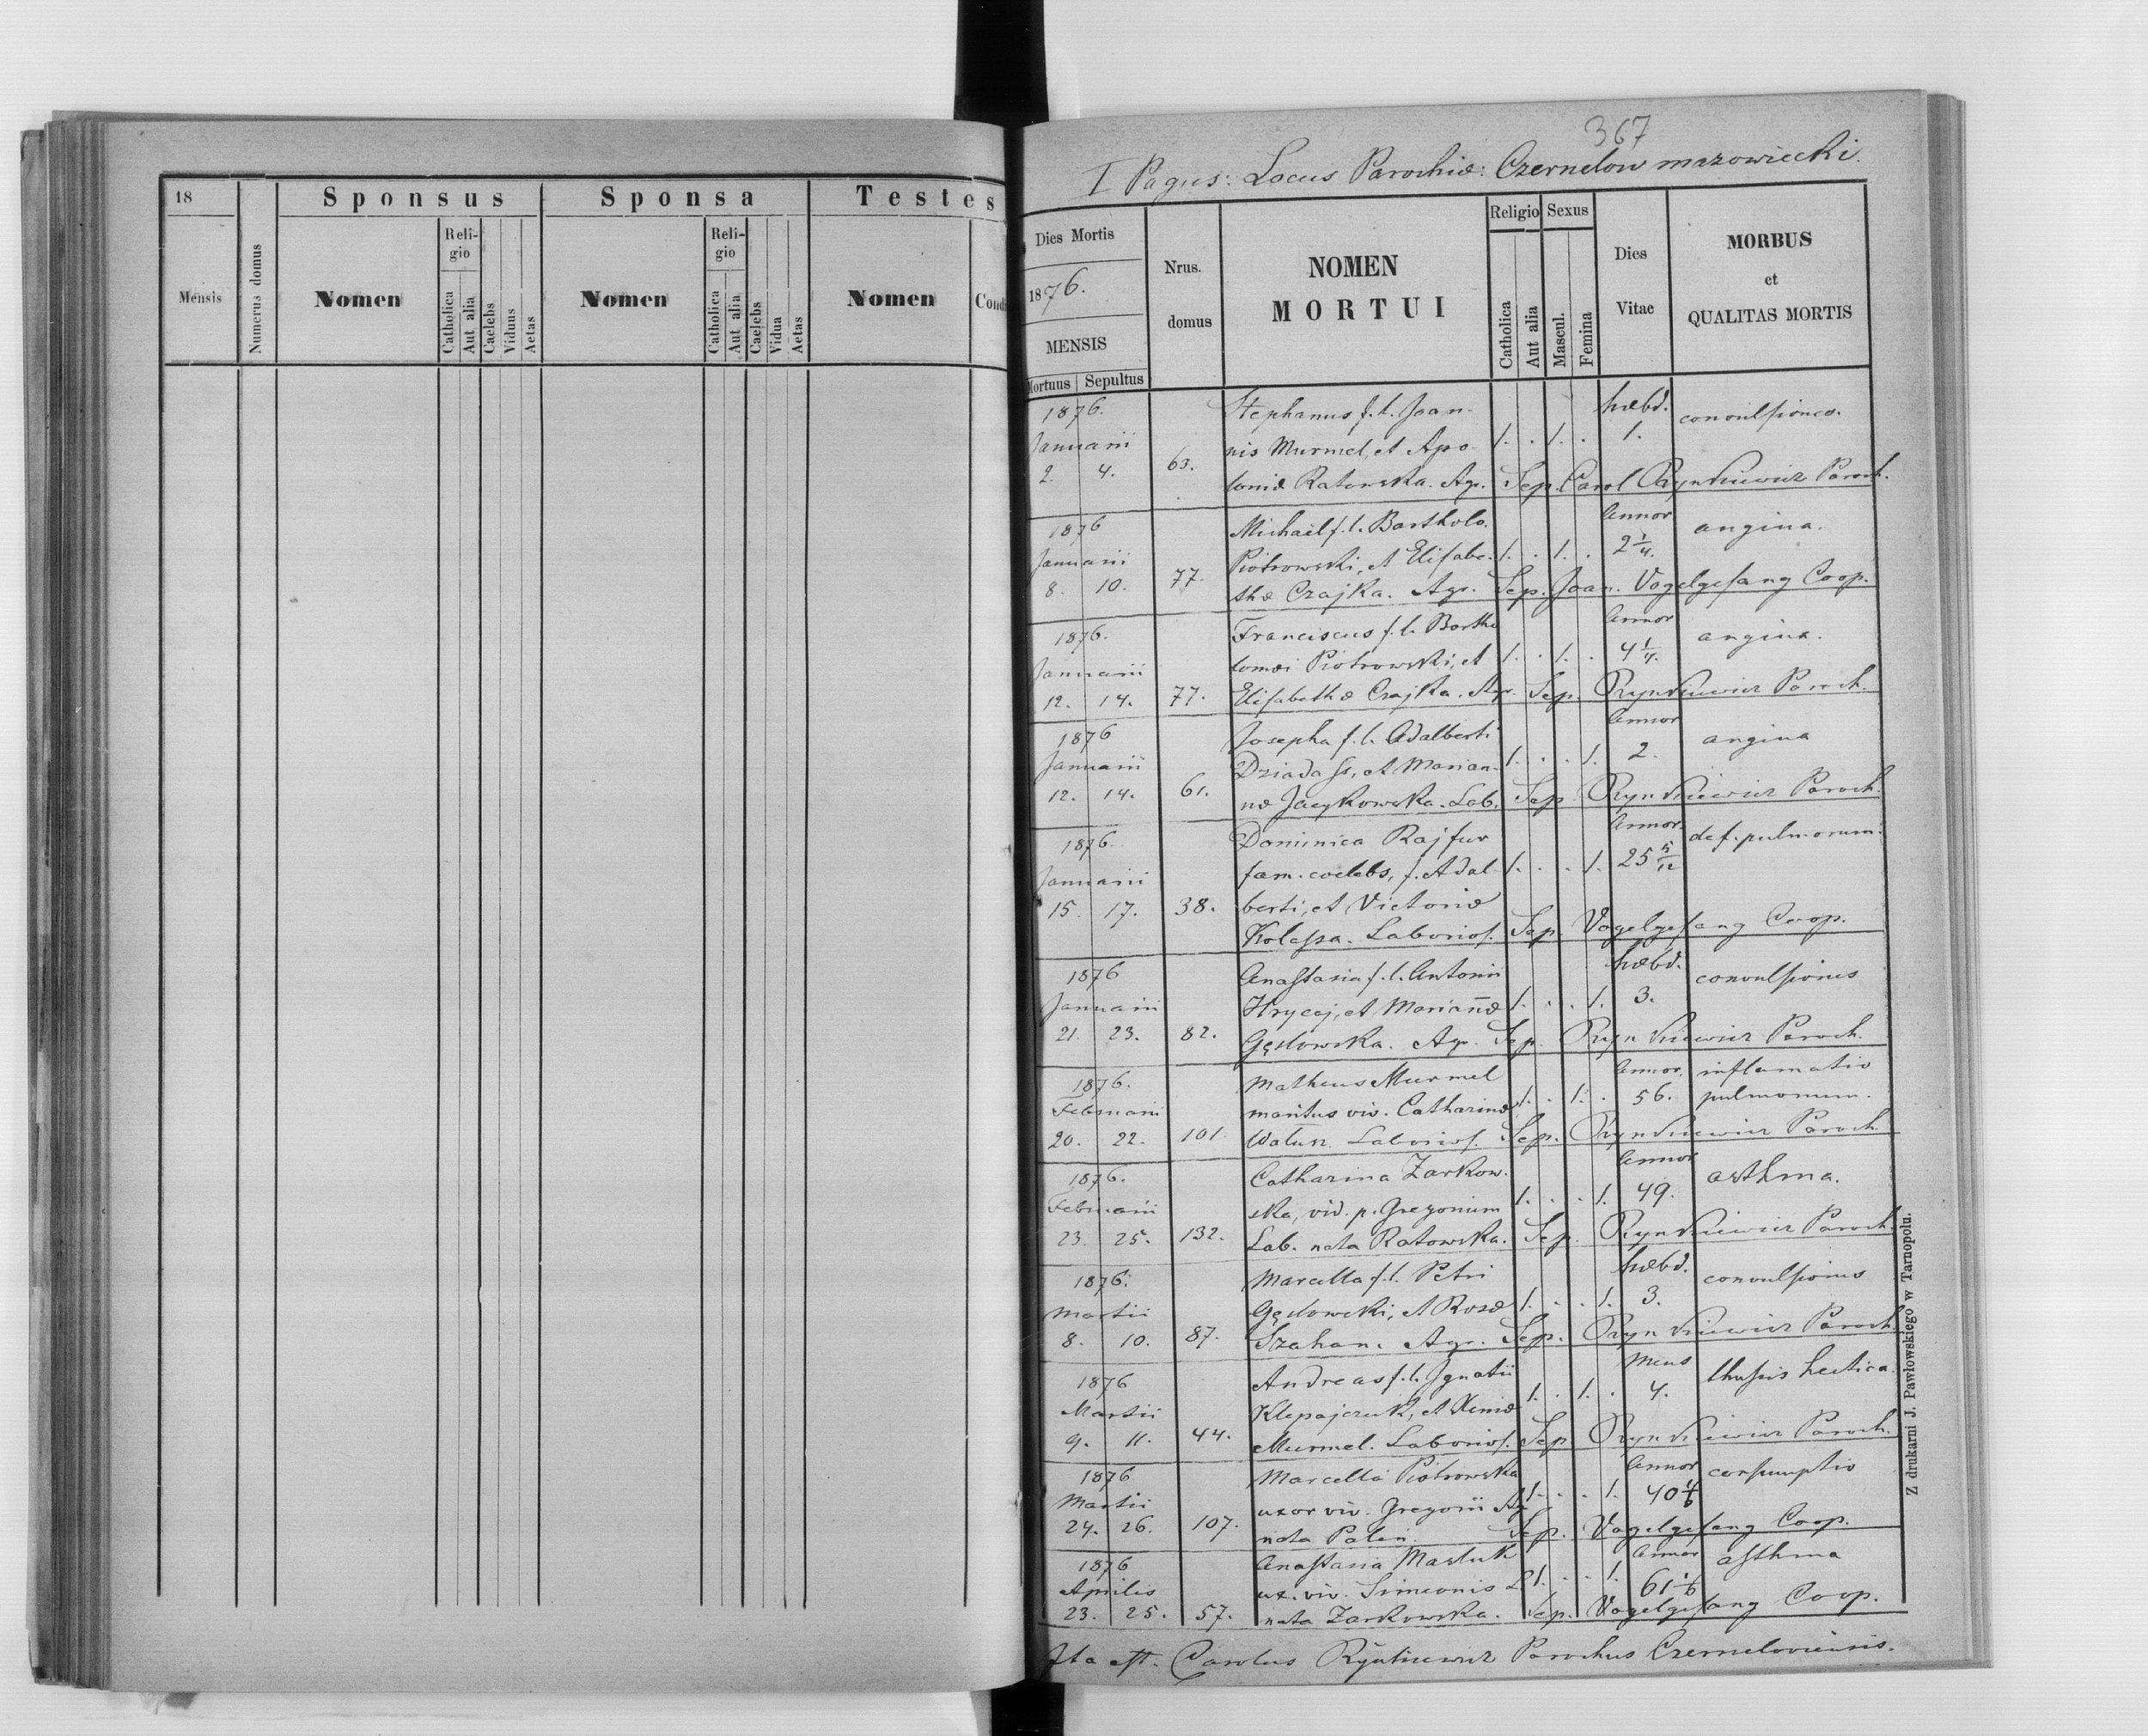 18
Sponsus
Sponsa
Testes
Mensis
Numerus domus
Nomen
Reli-
gio
Catholica
Aut alia
Caelebs
Viduus
Aetas
Nomen
Reli-
gio
Catholica
Aut alia
Caelebs
Vidua
Aetas
Nomen
Condi
367
I Pagus: Locus Parochiæ: Czernelow mazowiecki.
Dies Mortis
1876.
MENSIS
Mortuus Sepultus
Nrus.
domus
NOMEN
MORTUI
Religio Sexus
Catholica
Aut alia
Mascul.
Femina
Dies
Vitae
MORBUS
et
QUALITAS MORTIS
1876. Stephanus f. l. Joan- hæbd. convulsiones.
Januarii nis Murmel, et Apo- 1. . 1. . 1.
2. 4. 63. loniæ Ratowska. Agr. Sep. Carol Rynkiewicz Paroch.
1876 Michaël f. l. Bartholo. Annor angina.
Januarii Piotrowski, et Elisabe- 1. . 1. . 2 1/4.
8. 10. 77. thæ Czajka. Agr. Sep. Joan. Vogelgesang Coop.
1876. Franciscus f. l. Bartho Annor angina.
Januarii lomæi Piotrowski, et 1. . 1. . 4 1/4.
12. 14. 77. Elisabethæ Czajka. Agr. Sep. Rynkiewicz Paroch.
1876 Josepha f. l. Adalberti Annor angina
Januarii Dziadass, et Marian- 1. . . 1. 2.
12. 14. 61. næ Jacykowska. Lab. Sep. Rynkiewicz Paroch.
1876. Dominica Rajfur Annor. def. pulmorum.
Januarii fam. coelebs, f. Adal- 1. . . 1. 25 5/12
15. 17. 38. berti, et Victoriæ
Kolassa. Laborios. Sep. Vogelgesang Coop.
1876 Anastasia f. l. Antonii hæbd. convulsiones
Januarii Hrycaj, et Mariañæ 1. . . 1. 3.
21. 23. 82. Gęslowska. Agr. Sep. Rynkiewicz Paroch.
1876. Matheus Murmel Annor. inflamatio
Februarii maritus viv. Catharinæ 1. . 1. . 56. pulmonum.
20. 22. 101. Laborios. Sep. Rynkiewicz Paroch.
1876. Catharina Zarkow. Annor asthma.
Februarii ska, vid. p. Gregorium 1. . . 1. 49.
23. 25. 132. Lab. nata Ratowska. Sep. Rynkiewicz Paroch.
1876. Marcella f. l. Petri hæbd. convulsiones
Martii Gęslowski, et Rosæ 1. . . 1. 3.
8. 10. 87. Szahan. Agr. Sep. Rynkiewicz Paroch.
1876 Andreas f. l. Ignatii Mens thysis hectica.
Martii Klepajczuk, et Xeniæ 1. . 1. . 4.
9. 11. 44. Murmel. Laborios. Sep. Rynkiewicz Paroch.
1876 Marcella Piotrowska Annor consumptio
Martii uxor viv. Gregorii Agr 1. . . 1. 40 1/6
24. 26. 107. nata Palin Sep. Vogelgesang Coop.
1876 Anastasia Masluk Annor asthma
Aprilis ux. viv. Simeonis L 1. . . 1. 61 1/6
23. 25. 57. nata Zarkowska. Sep. Vogelgesang Coop.
Ita est. Carolus Rynkiewicz Parochus Czerneloviensis.
Z drukarni J. Pawłowskiego w Tarnopolu.